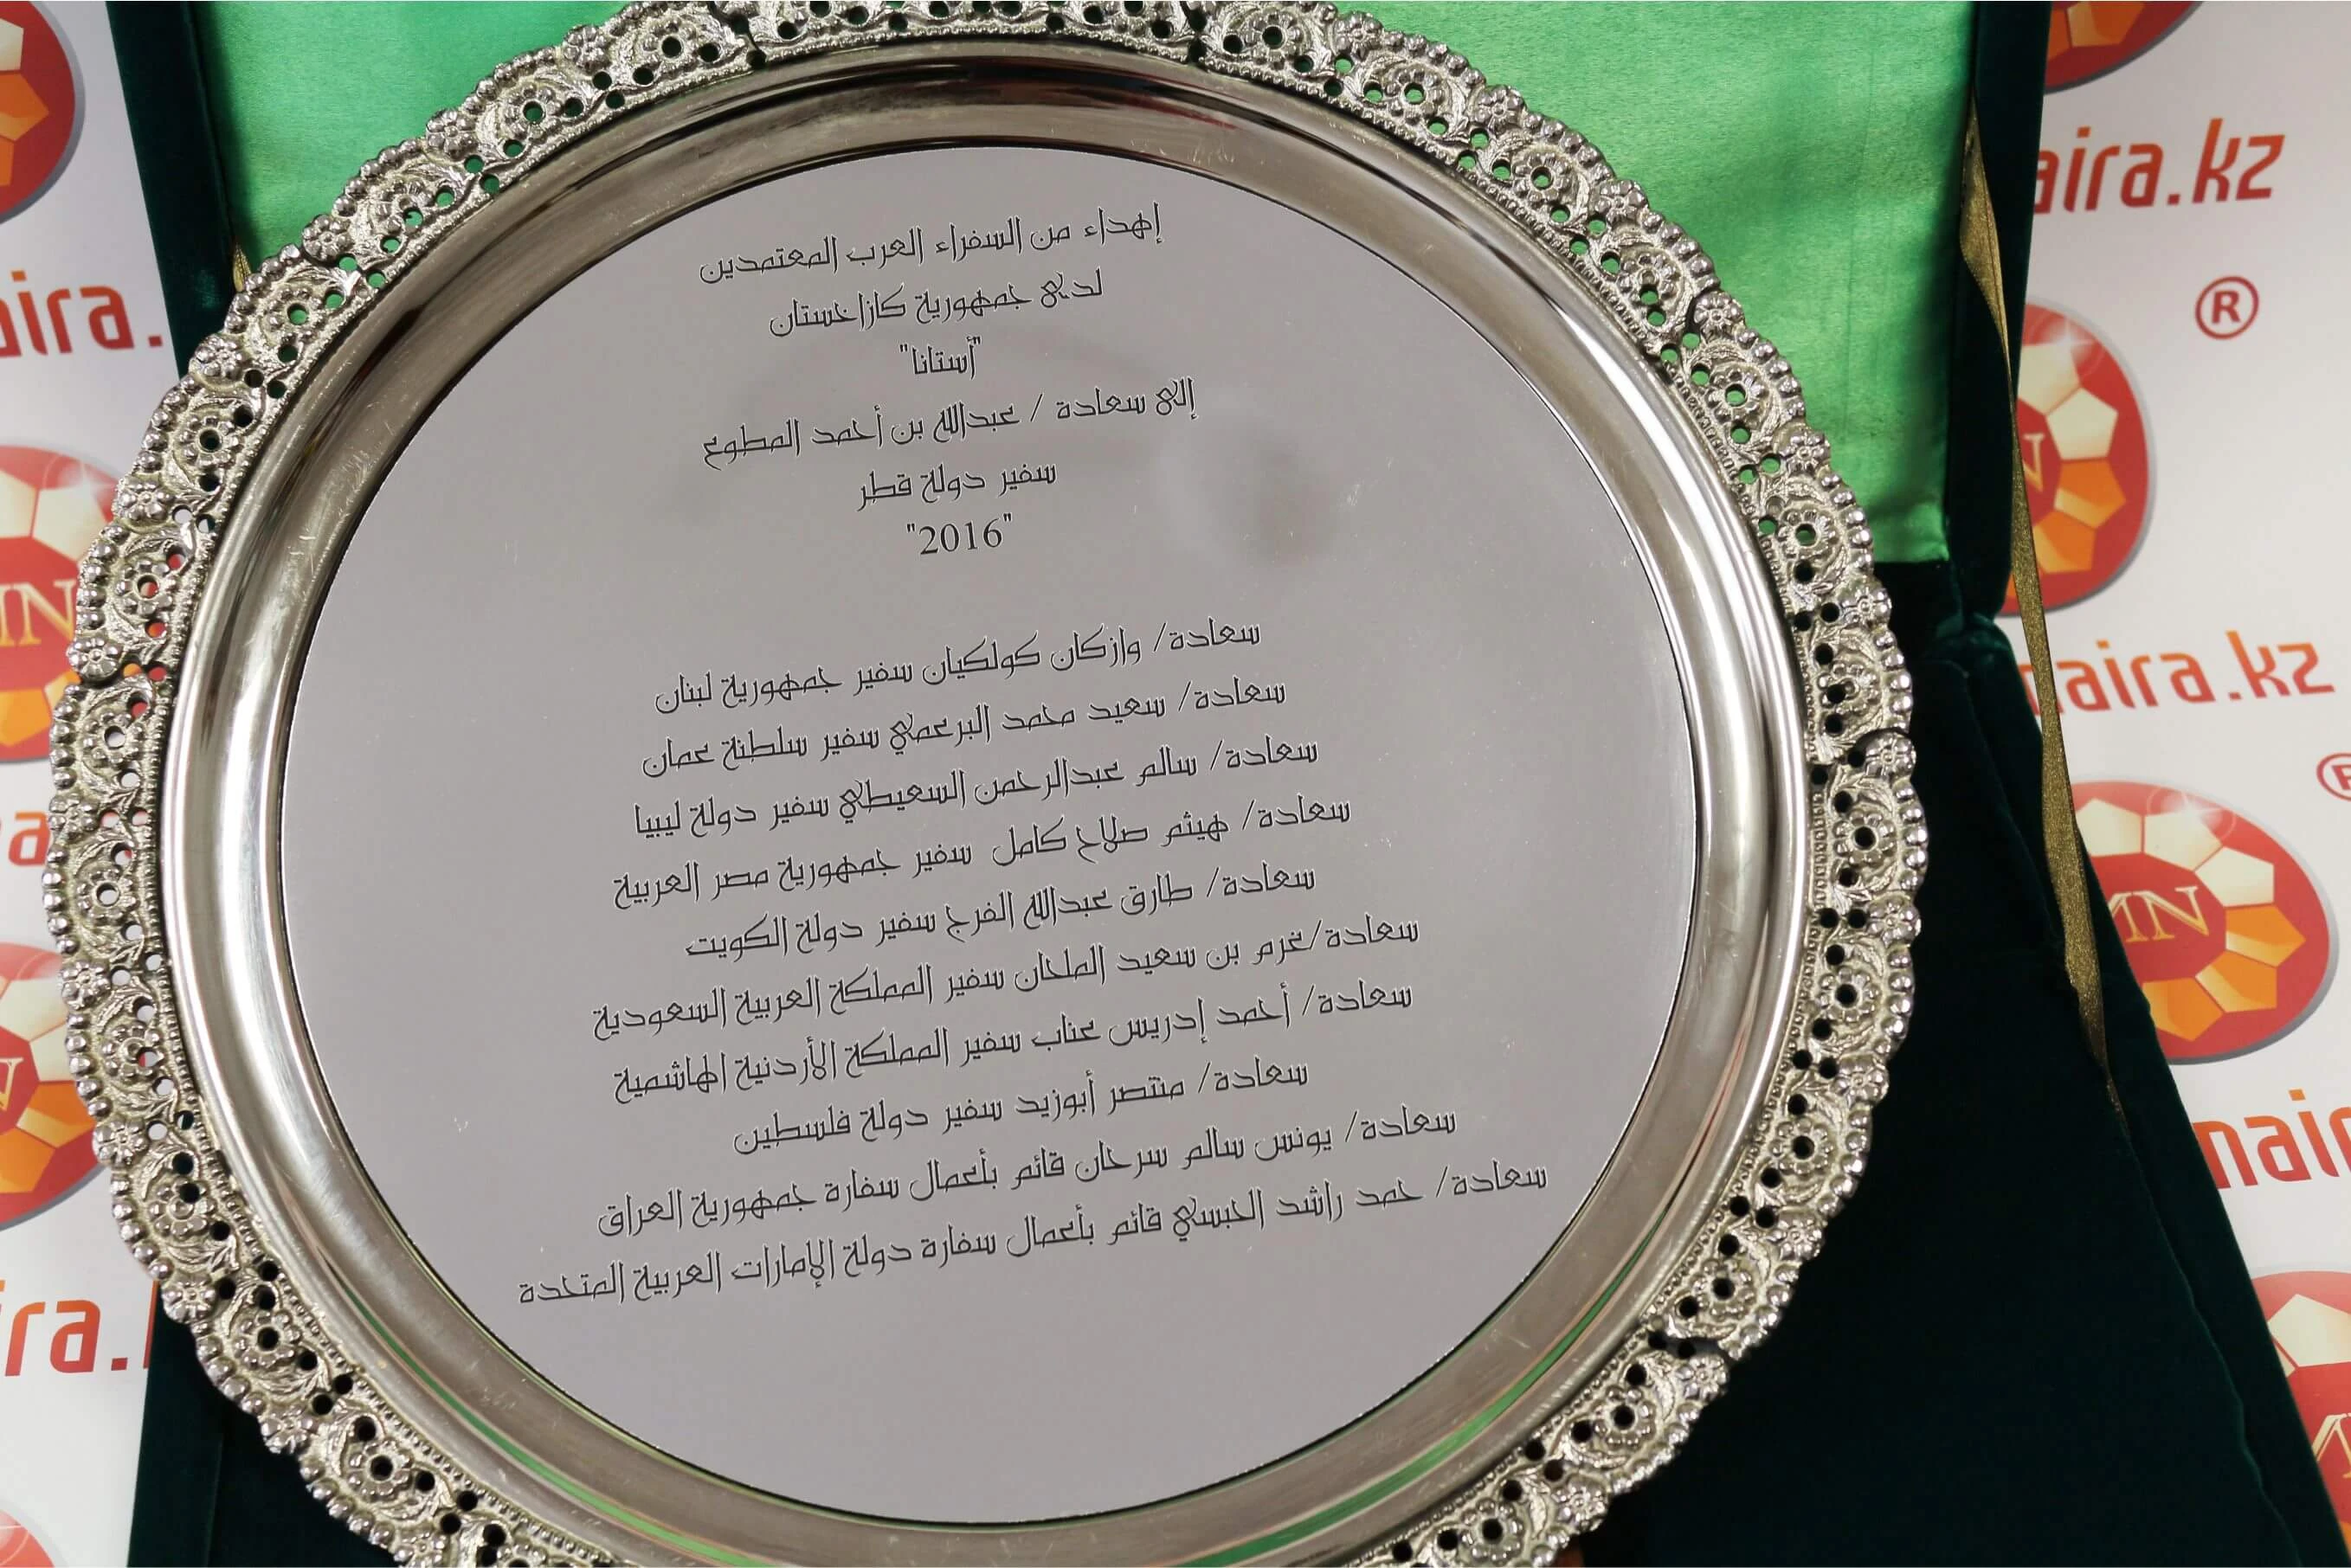 إهداء من السفراء العرب المعتمدين
لدى جمهورية كازاخستان
"أستانا"
إلى سعادة / عبدالله بن أحمد المطوع
سفير دولة قطر
"2016"
سعادة/ وازكان كولكيان سفير جمهورية لبنان
سعادة/ سعيد محمد البرعمي سفير سلطنة عمان
سعادة/ سالم عبدالرحمن السعيطي سفير دولة ليبيا
سعادة/ هيثم صلاح كامل سفير جمهورية مصر العربية
سعادة/ طارق عبدالله الفرج سفير دولة الكويت
سعادة/غرم بن سعيد الملحان سفير المملكة العربية السعودية
سعادة/ أحمد إدريس عناب سفير المملكة الأردنية الهاشمية
سعادة/ منتصر أبوزيد سفير دولة فلسطين
سعادة/ يونس سالم سرحان قائم بأعمال سفارة جمهورية العراق
سعادة/ حمد راشد الحبسي قائم بأعمال سفارة دولة الإمارات العربية المتحدة
aira.kz
®
aira.
N
naira.kz
MN
nair
ira.